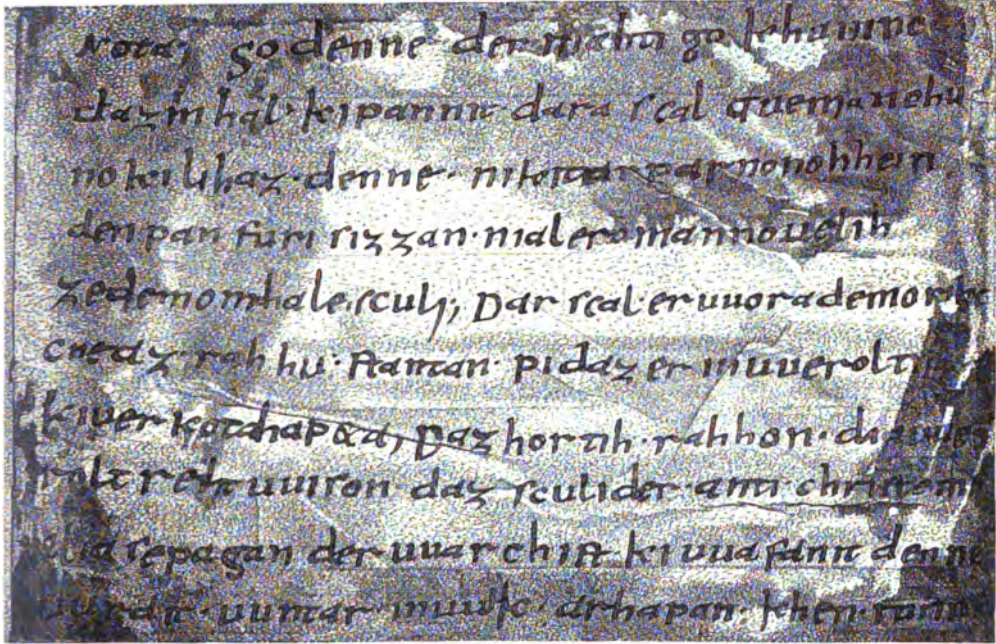 nota; so denne der mahtigo khuninc
daz mhal· kipannit dara scal queman ehu
no kilihaz· denne· nikitar parno nohhein
den pan furi sizzan· nialero manno uelih
ze demo mhale sculi; Dar scal· er uuora demo rihhe
az· rahhu· stantan· pi daz er in uuerolti
kiuerkota hap&a; Daz hortih· rahhon· dia uue
roltreht uuison daz sculi der· anti christo mi
pagan der uuarch ist· ki uuafanit denne
uurdit· uuntar· in uuic· arhapan· khen